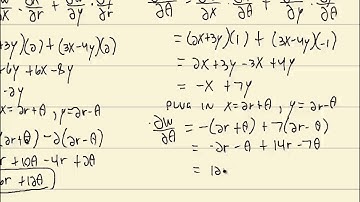 ∂x ∂r + ∂y ∂r
∂θ ∂x ∂θ ∂y ∂θ
+3y)(2) + (3x-4y)(2)
= (2x+3y)(1) + (3x-4y)(-1)
+6y + 6x - 8y
= 2x + 3y - 3x + 4y
-2y
= -x + 7y
x = 2r+θ , y = 2r-θ
PLUG IN x = 2r+θ , y = 2r-θ
(2r+θ) - 2(2r-θ)
∂w/∂θ = -(2r+θ) + 7(2r-θ)
r + 10θ - 4r + 2θ
= -2r - θ + 14r - 7θ
6r + 12θ
= 12